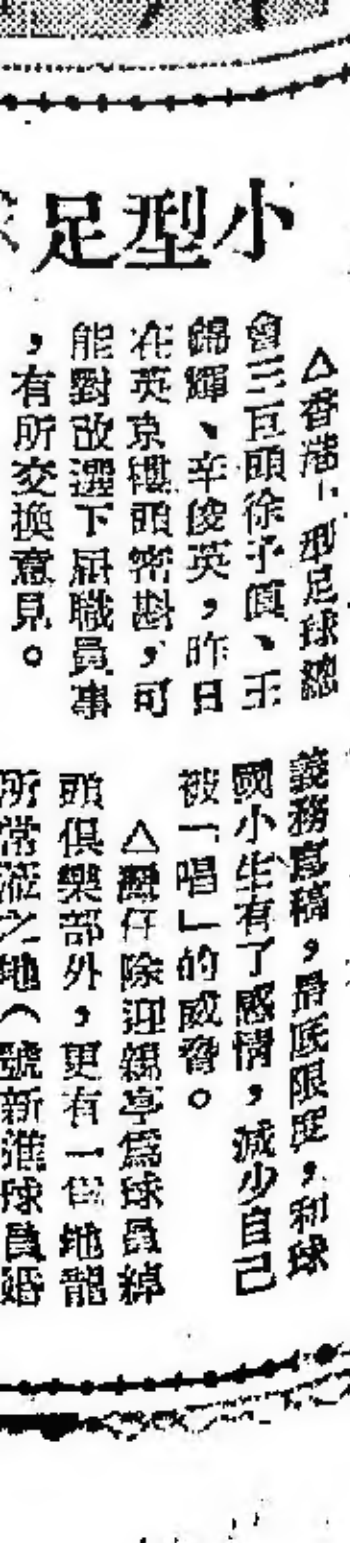 小型足
△香港小型足球總
會三巨頭徐予愼、王
錦輝、辛俊英，昨日
在英京樓頭密斟，可
能對改選下屆職員事
，有所交換意見。
義務寫稿，最低限度，和球
國小生有了感情，減少自己
被「唱」的威脅。
△仔除迎親亭爲球員綽
頭俱樂部外，更有一地龍
所常涖之地（號新進球員